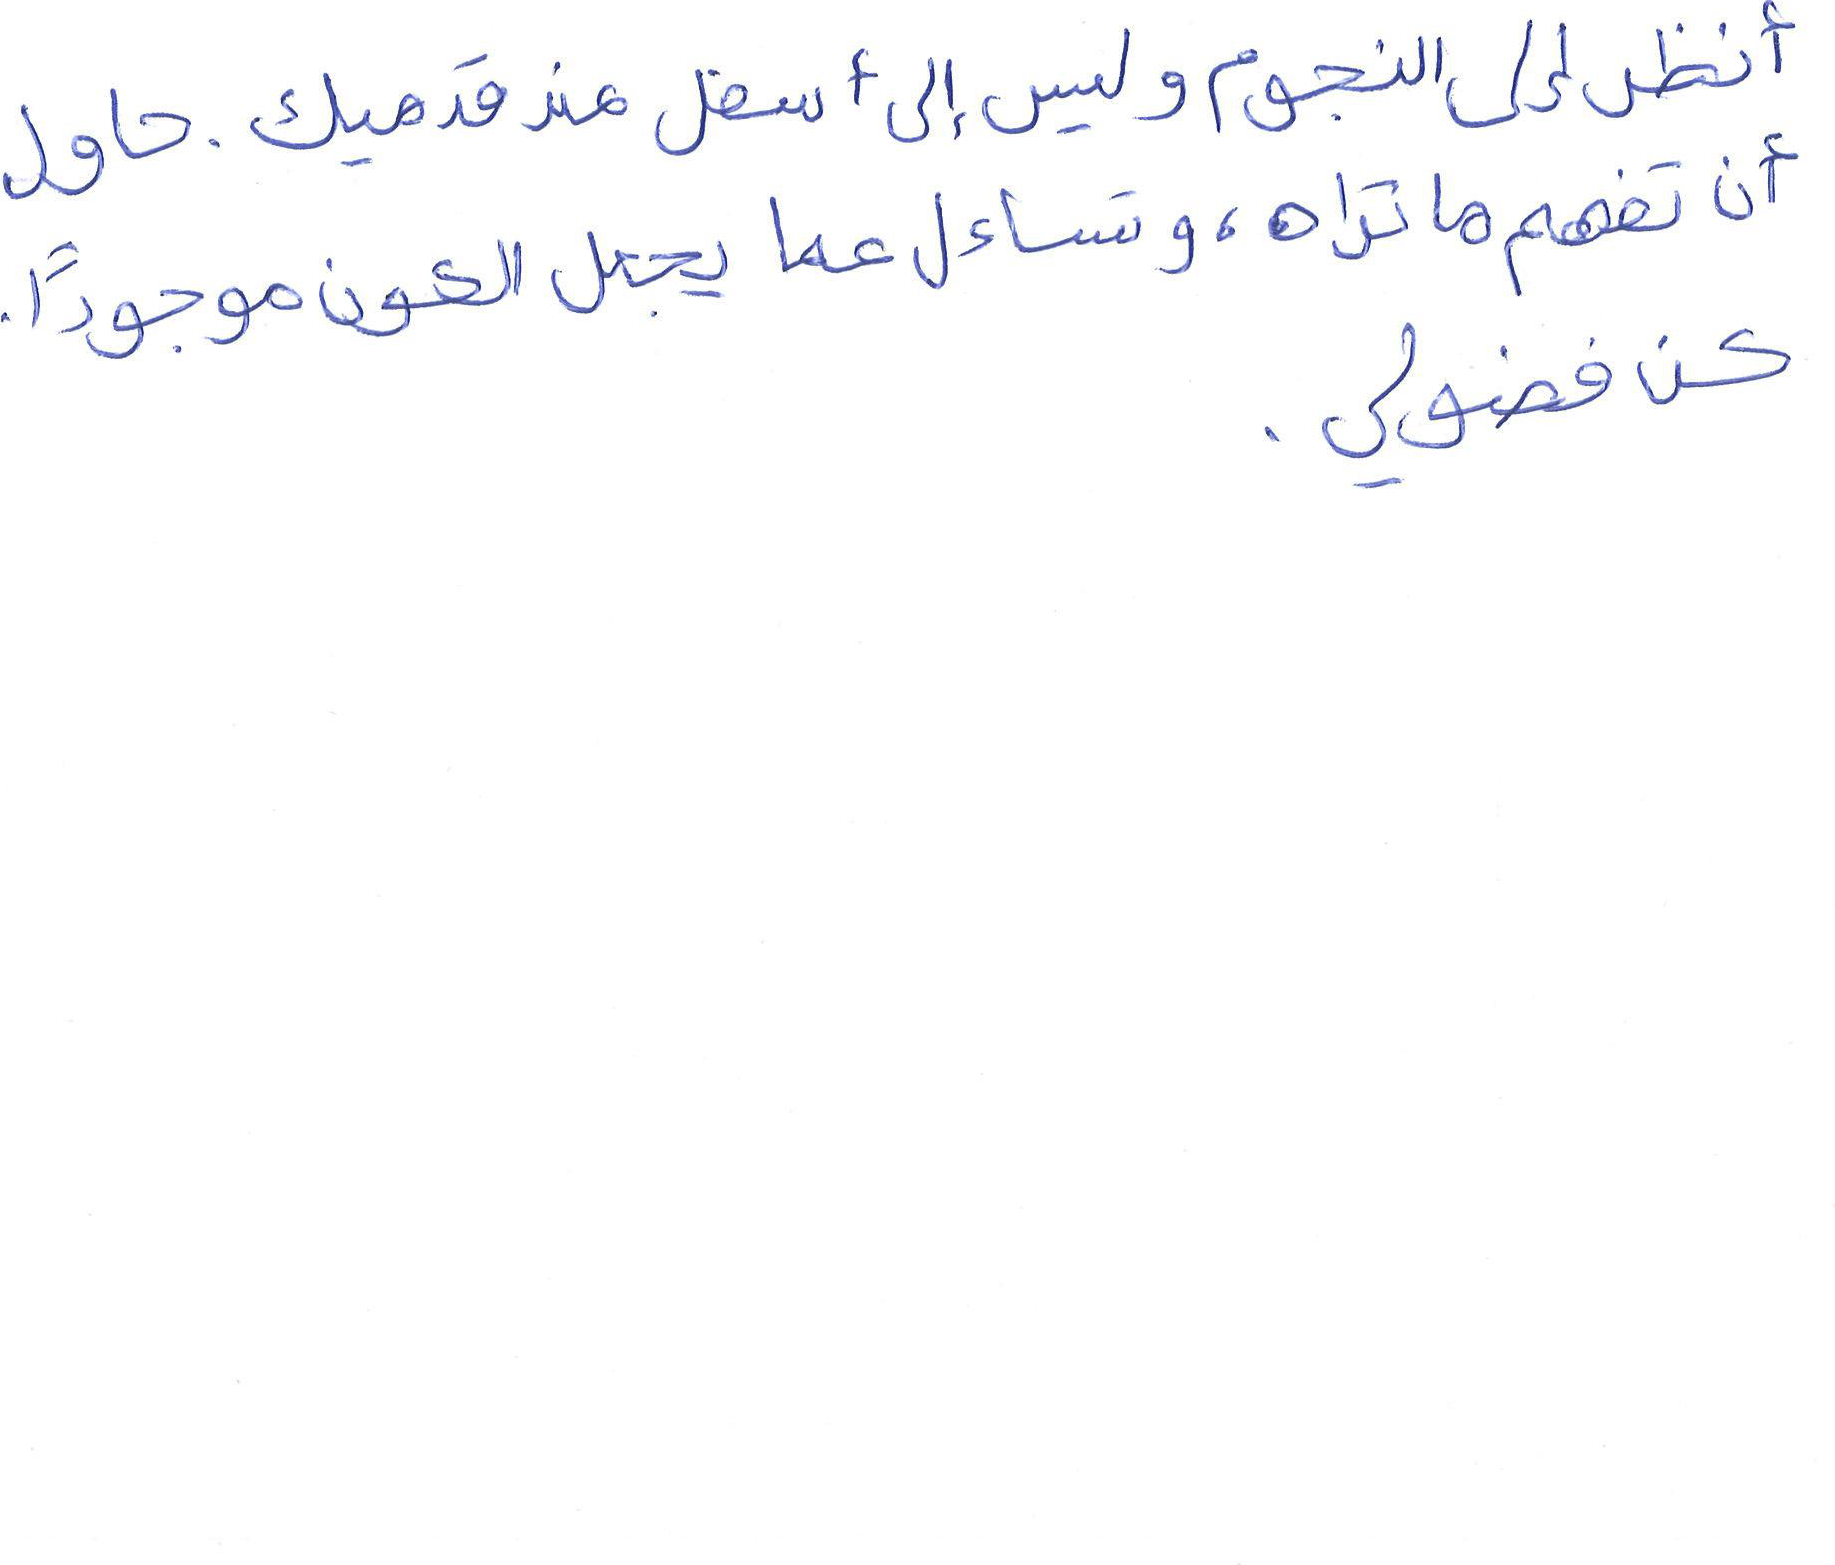 أنظر إلى النجوم وليس إلى أسفل عند قدميك. حاول
أن تفهم ما تراه، وتساءل عما يجعل الكون موجودًا.
كن فضولي.